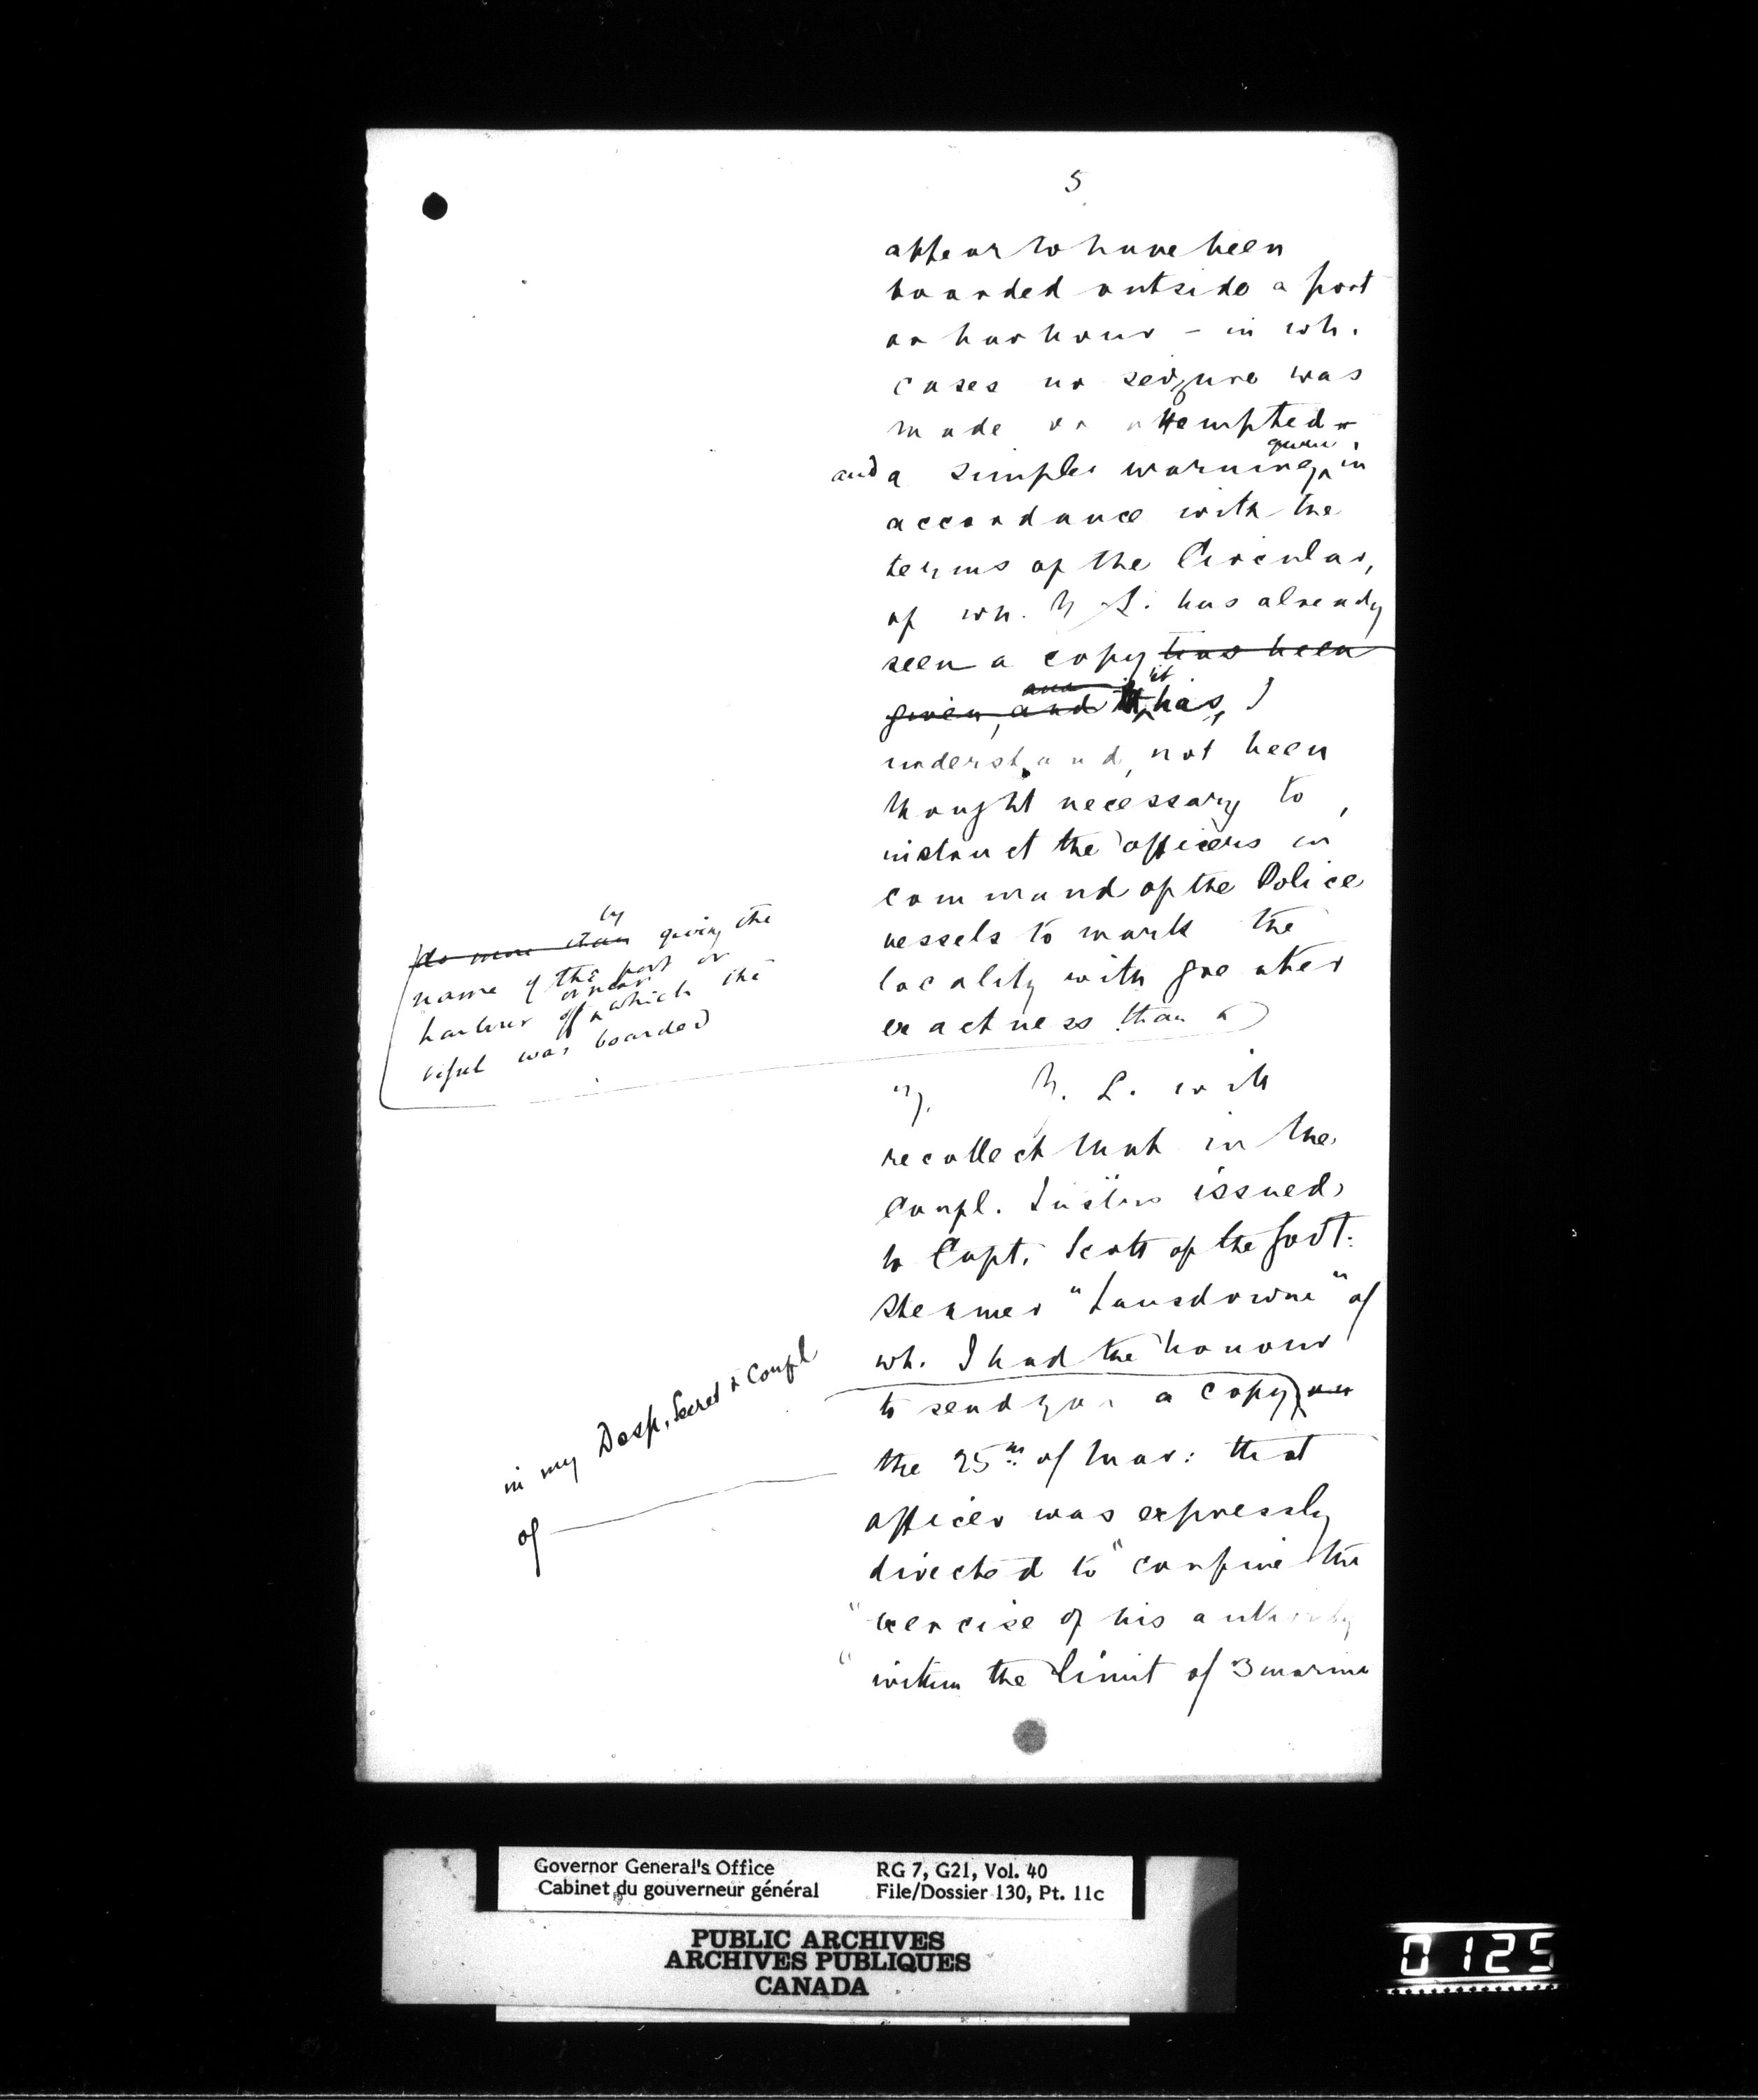 5
appear to have been
boarded outside a port
or harbour – in wh.
cases no seizure was
made or attempted –
given
and a simple warning, in
accordance with the
terms of the Circular,
of wh. Y L. has already
seen a copy has been
given, and it has, I
understand, not been
thought necessary to
instruct the officers in
command of the Police
vessels to mark the
locality with greater
exactness than
by
do more than giving the
name of the port or
or near
harbour off which the
vessel was boarded
7. Y. L. will
recollect that in the
Confl. Instns issued
to Capt. Scott of the Govt:
Steamer "Lansdowne" of
wh. I had the honour
to send you a copy on
in my Desp. Secret & Confl
of
the 25th of Mar: that
officer was expressly
directed to "confine the
"exercise of his authority
"within the limit of 3 marine
Governor General's Office
Cabinet du gouverneur général
RG 7, G21, Vol. 40
File/Dossier 130, Pt. 11c
PUBLIC ARCHIVES
ARCHIVES PUBLIQUES
CANADA
0125